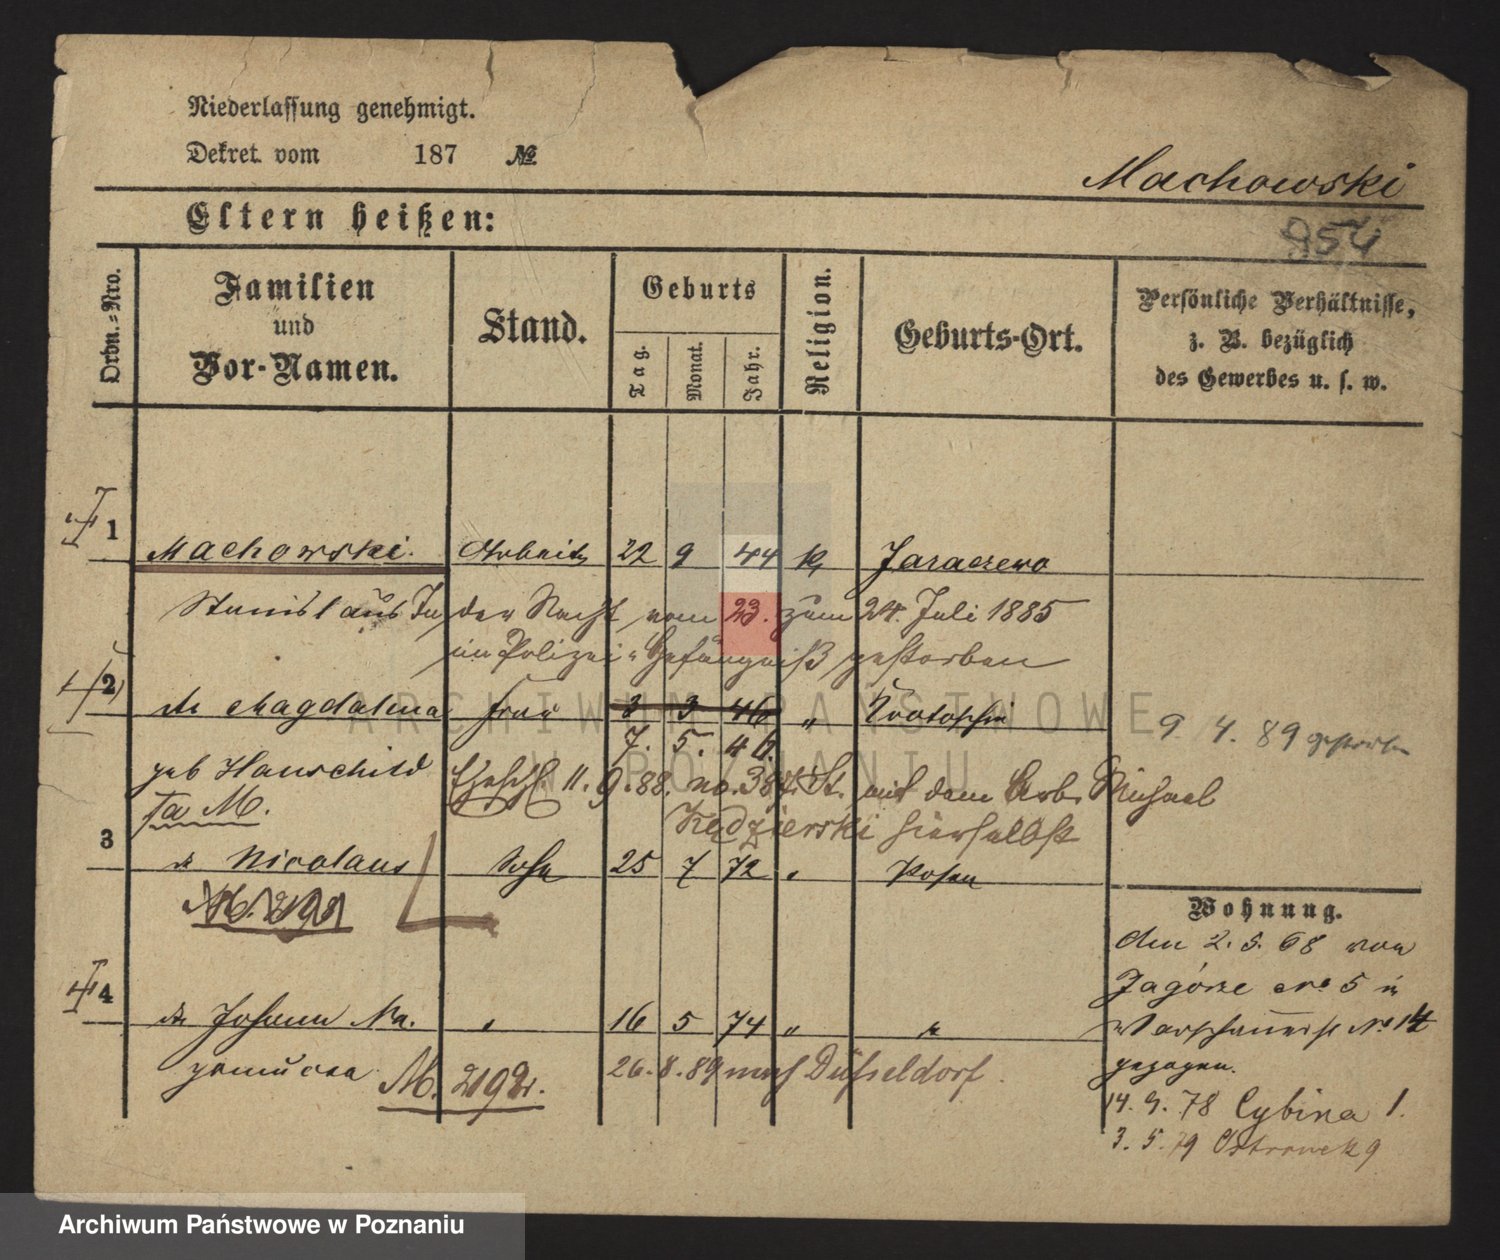 Niederlassung genehmigt.
Dekret vom 187 №
Machowski
Eltern heißen:
954
Ordn.-Nro.
Familien und Vor-Namen.
Stand.
Geburts
Tag.
Monat.
Jahr.
Religion.
Geburts-Ort.
Persönliche Verhältnisse, z. B. bezüglich des Gewerbes u. s. w.
1 Machowski. Arbeiter 22 9 44 K Jaraczewo
Stanislaus In der Nacht vom 23. zum 24. Juli 1885
im Polizei-Gefängniß gestorben
2 Magdalena Frau 3 3 46 " Krotoschin
7. 5. 46.
9. 4. 89 gestorben
geb Hauschild Eheschl. 11. 9. 88. no. 384. St. mit dem Arb. Michael
Fa M. Kędzierski hierselbst
3 Nicolaus Sohn 25 7 72 " Posen
Wohnung.
Am 2. 5. 68 von
Zagórze No 5 in
4 Johann Ma. " 16 5 74 " "
Warschauerstr No 14
gezogen.
M. 2192. 26. 8. 89 nach Düsseldorf.
14. 9. 78 Cybina 1.
3. 5. 79 Ostrowek 9
ARCHIWUM PAŃSTWOWE
W POZNANIU
Archiwum Państwowe w Poznaniu